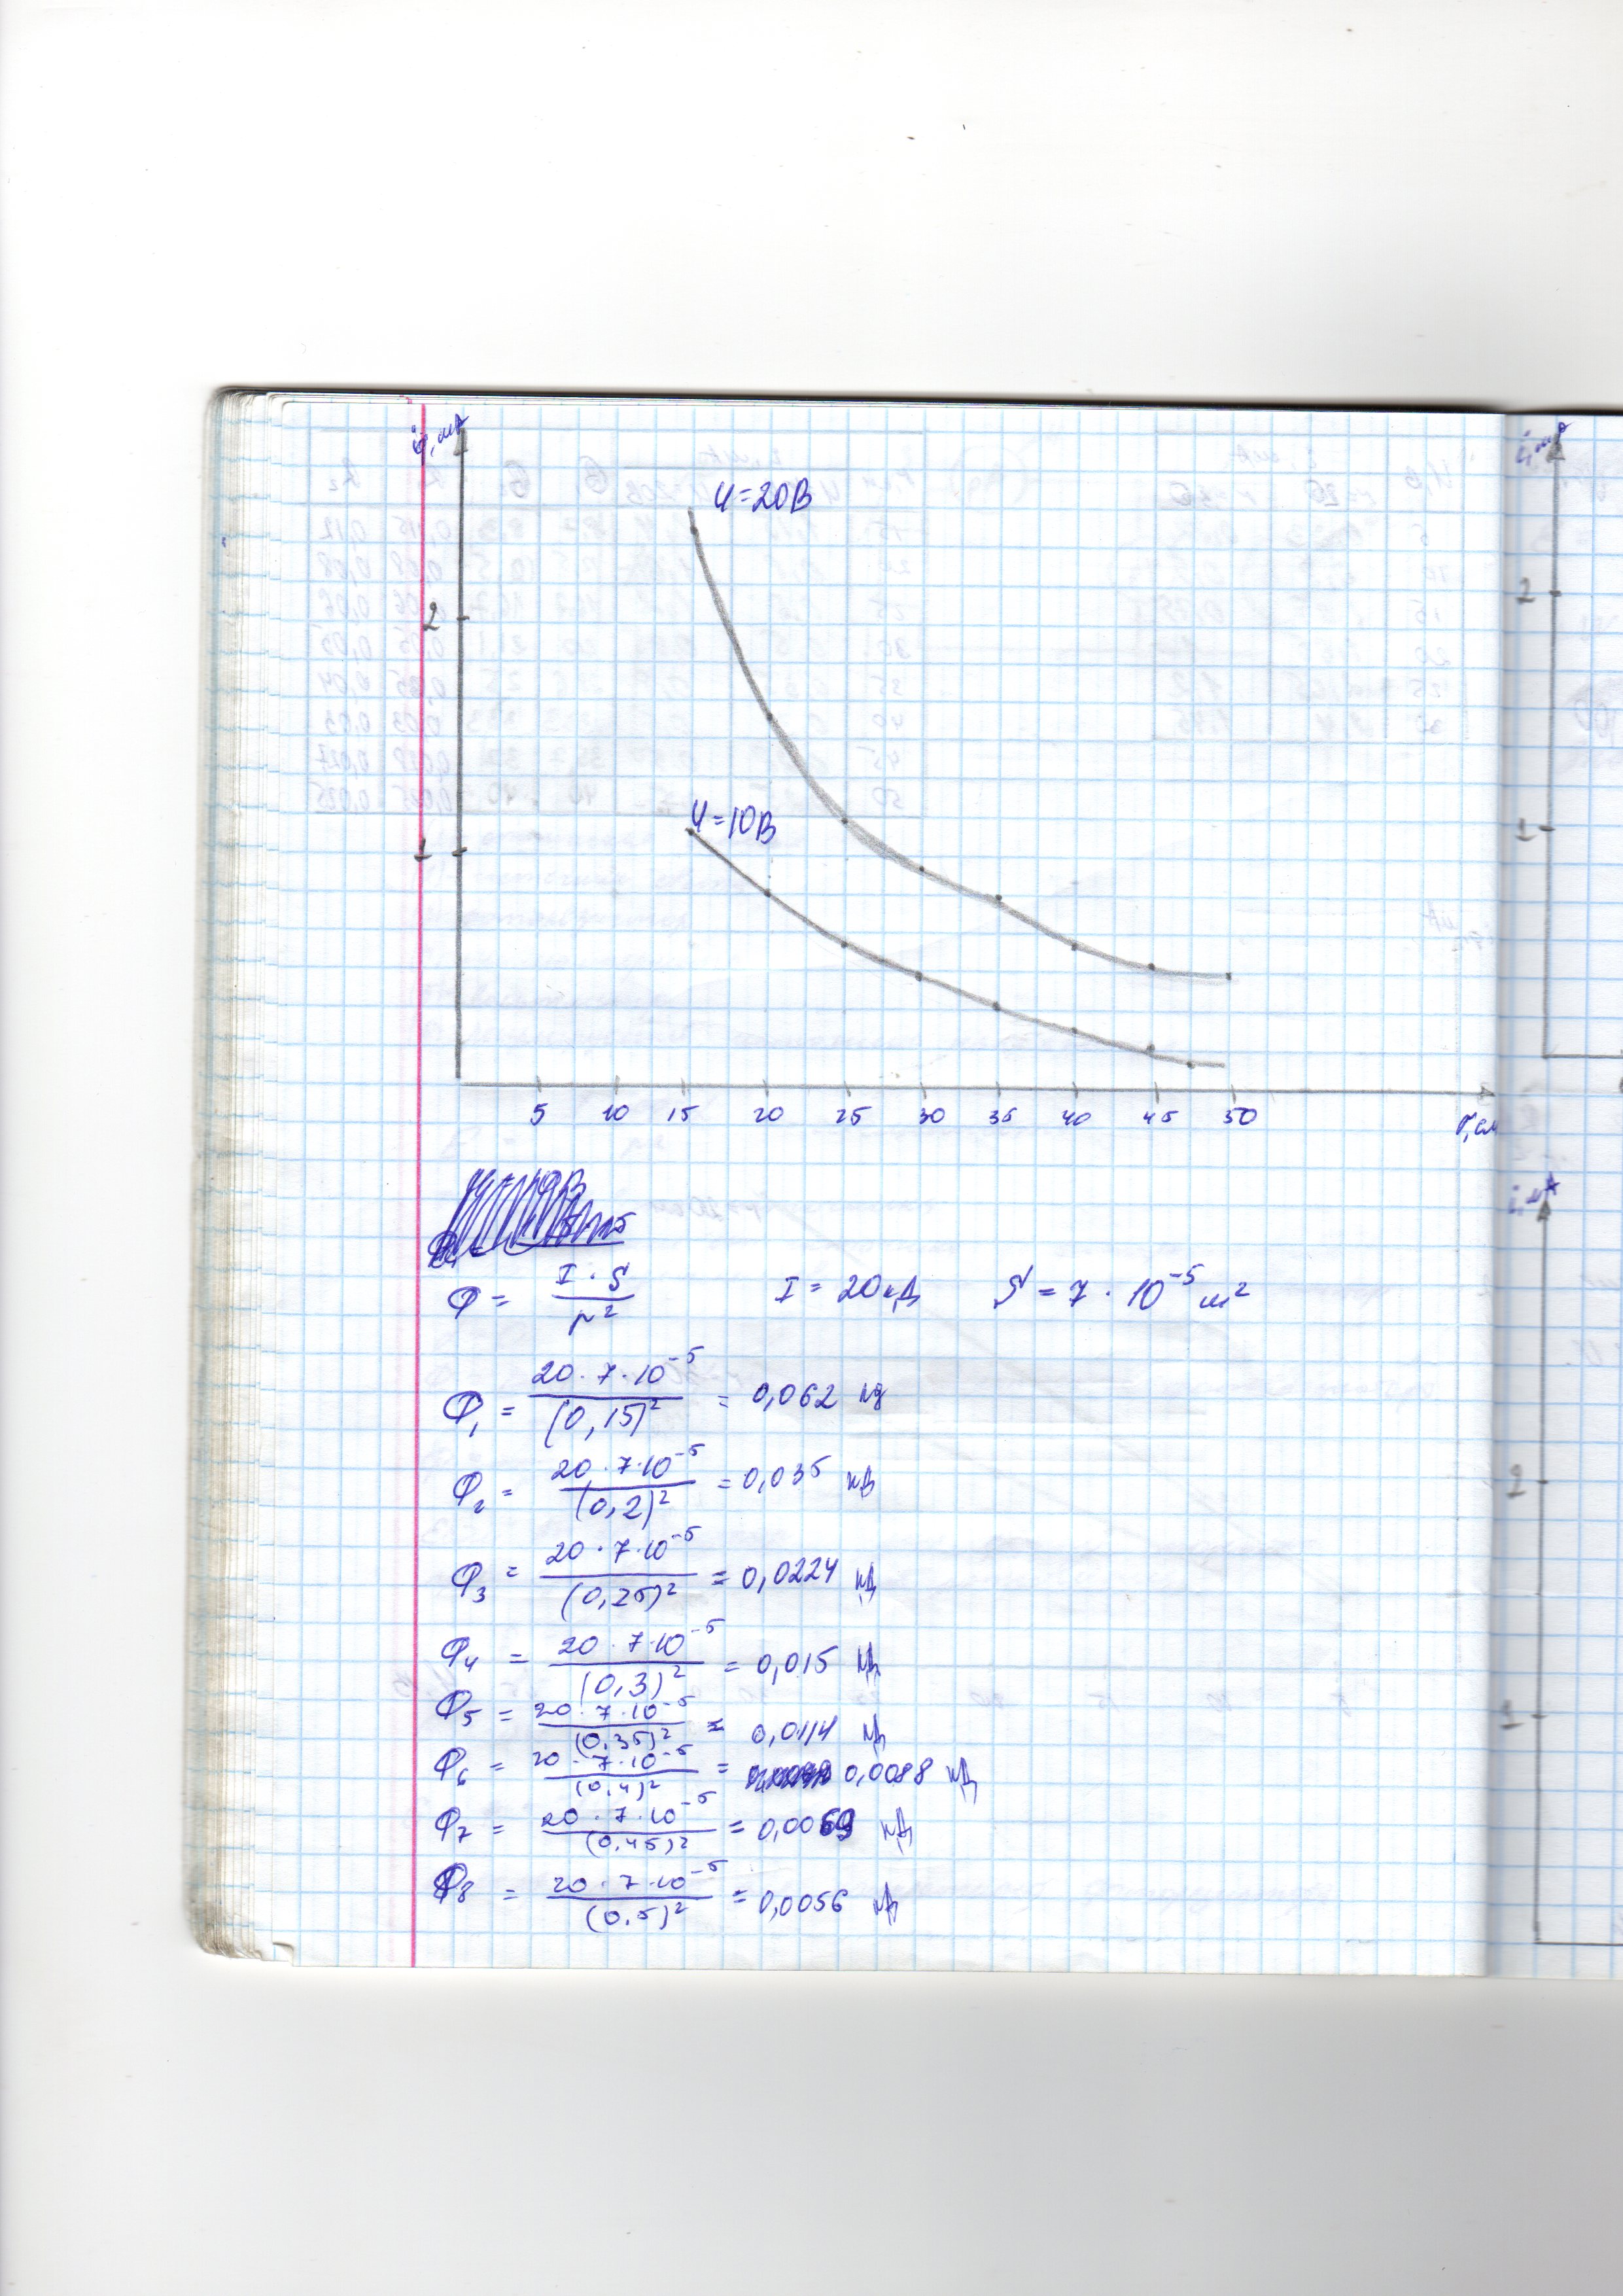 i, мА
U=20В
2
U=10В
1
5 10 15 20 25 30 35 40 45 50 r, см
Φ = I · S / r² I = 20 кД S = 7 · 10⁻⁵ м²
Φ₁ = 20 · 7 · 10⁻⁵ / (0,15)² = 0,062 кд
Φ₂ = 20 · 7 · 10⁻⁵ / (0,2)² = 0,035 кД
Φ₃ = 20 · 7 · 10⁻⁵ / (0,25)² = 0,0224 кД
Φ₄ = 20 · 7 · 10⁻⁵ / (0,3)² = 0,015 кД
Φ₅ = 20 · 7 · 10⁻⁵ / (0,35)² = 0,0114 кД
Φ₆ = 20 · 7 · 10⁻⁵ / (0,4)² = 0,0088 кД
Φ₇ = 20 · 7 · 10⁻⁵ / (0,45)² = 0,0069 кД
Φ₈ = 20 · 7 · 10⁻⁵ / (0,5)² = 0,0056 кД
i, мА
2
1
i, мА
2
1